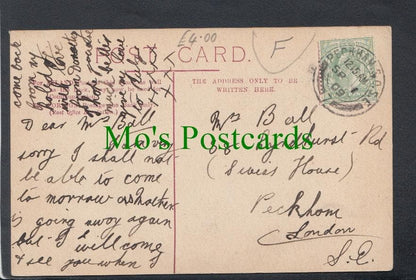 £4.00
F
POST CARD.
THE ADDRESS ONLY TO BE
WRITTEN HERE.
PECKHAM S.O. S.E.
12.15 PM
SP 1
09
Mo's Postcards
Dear Mrs Ball
I am very
sorry I shall not
be able to come
to morrow as Mother
is going away again
but I will come
& see you when I
come back
from my
holiday
with love
from
much better
give my love
to
Mrs Ball
Lyndhurst Rd
(Swiss House)
Peckham
London
S.E.